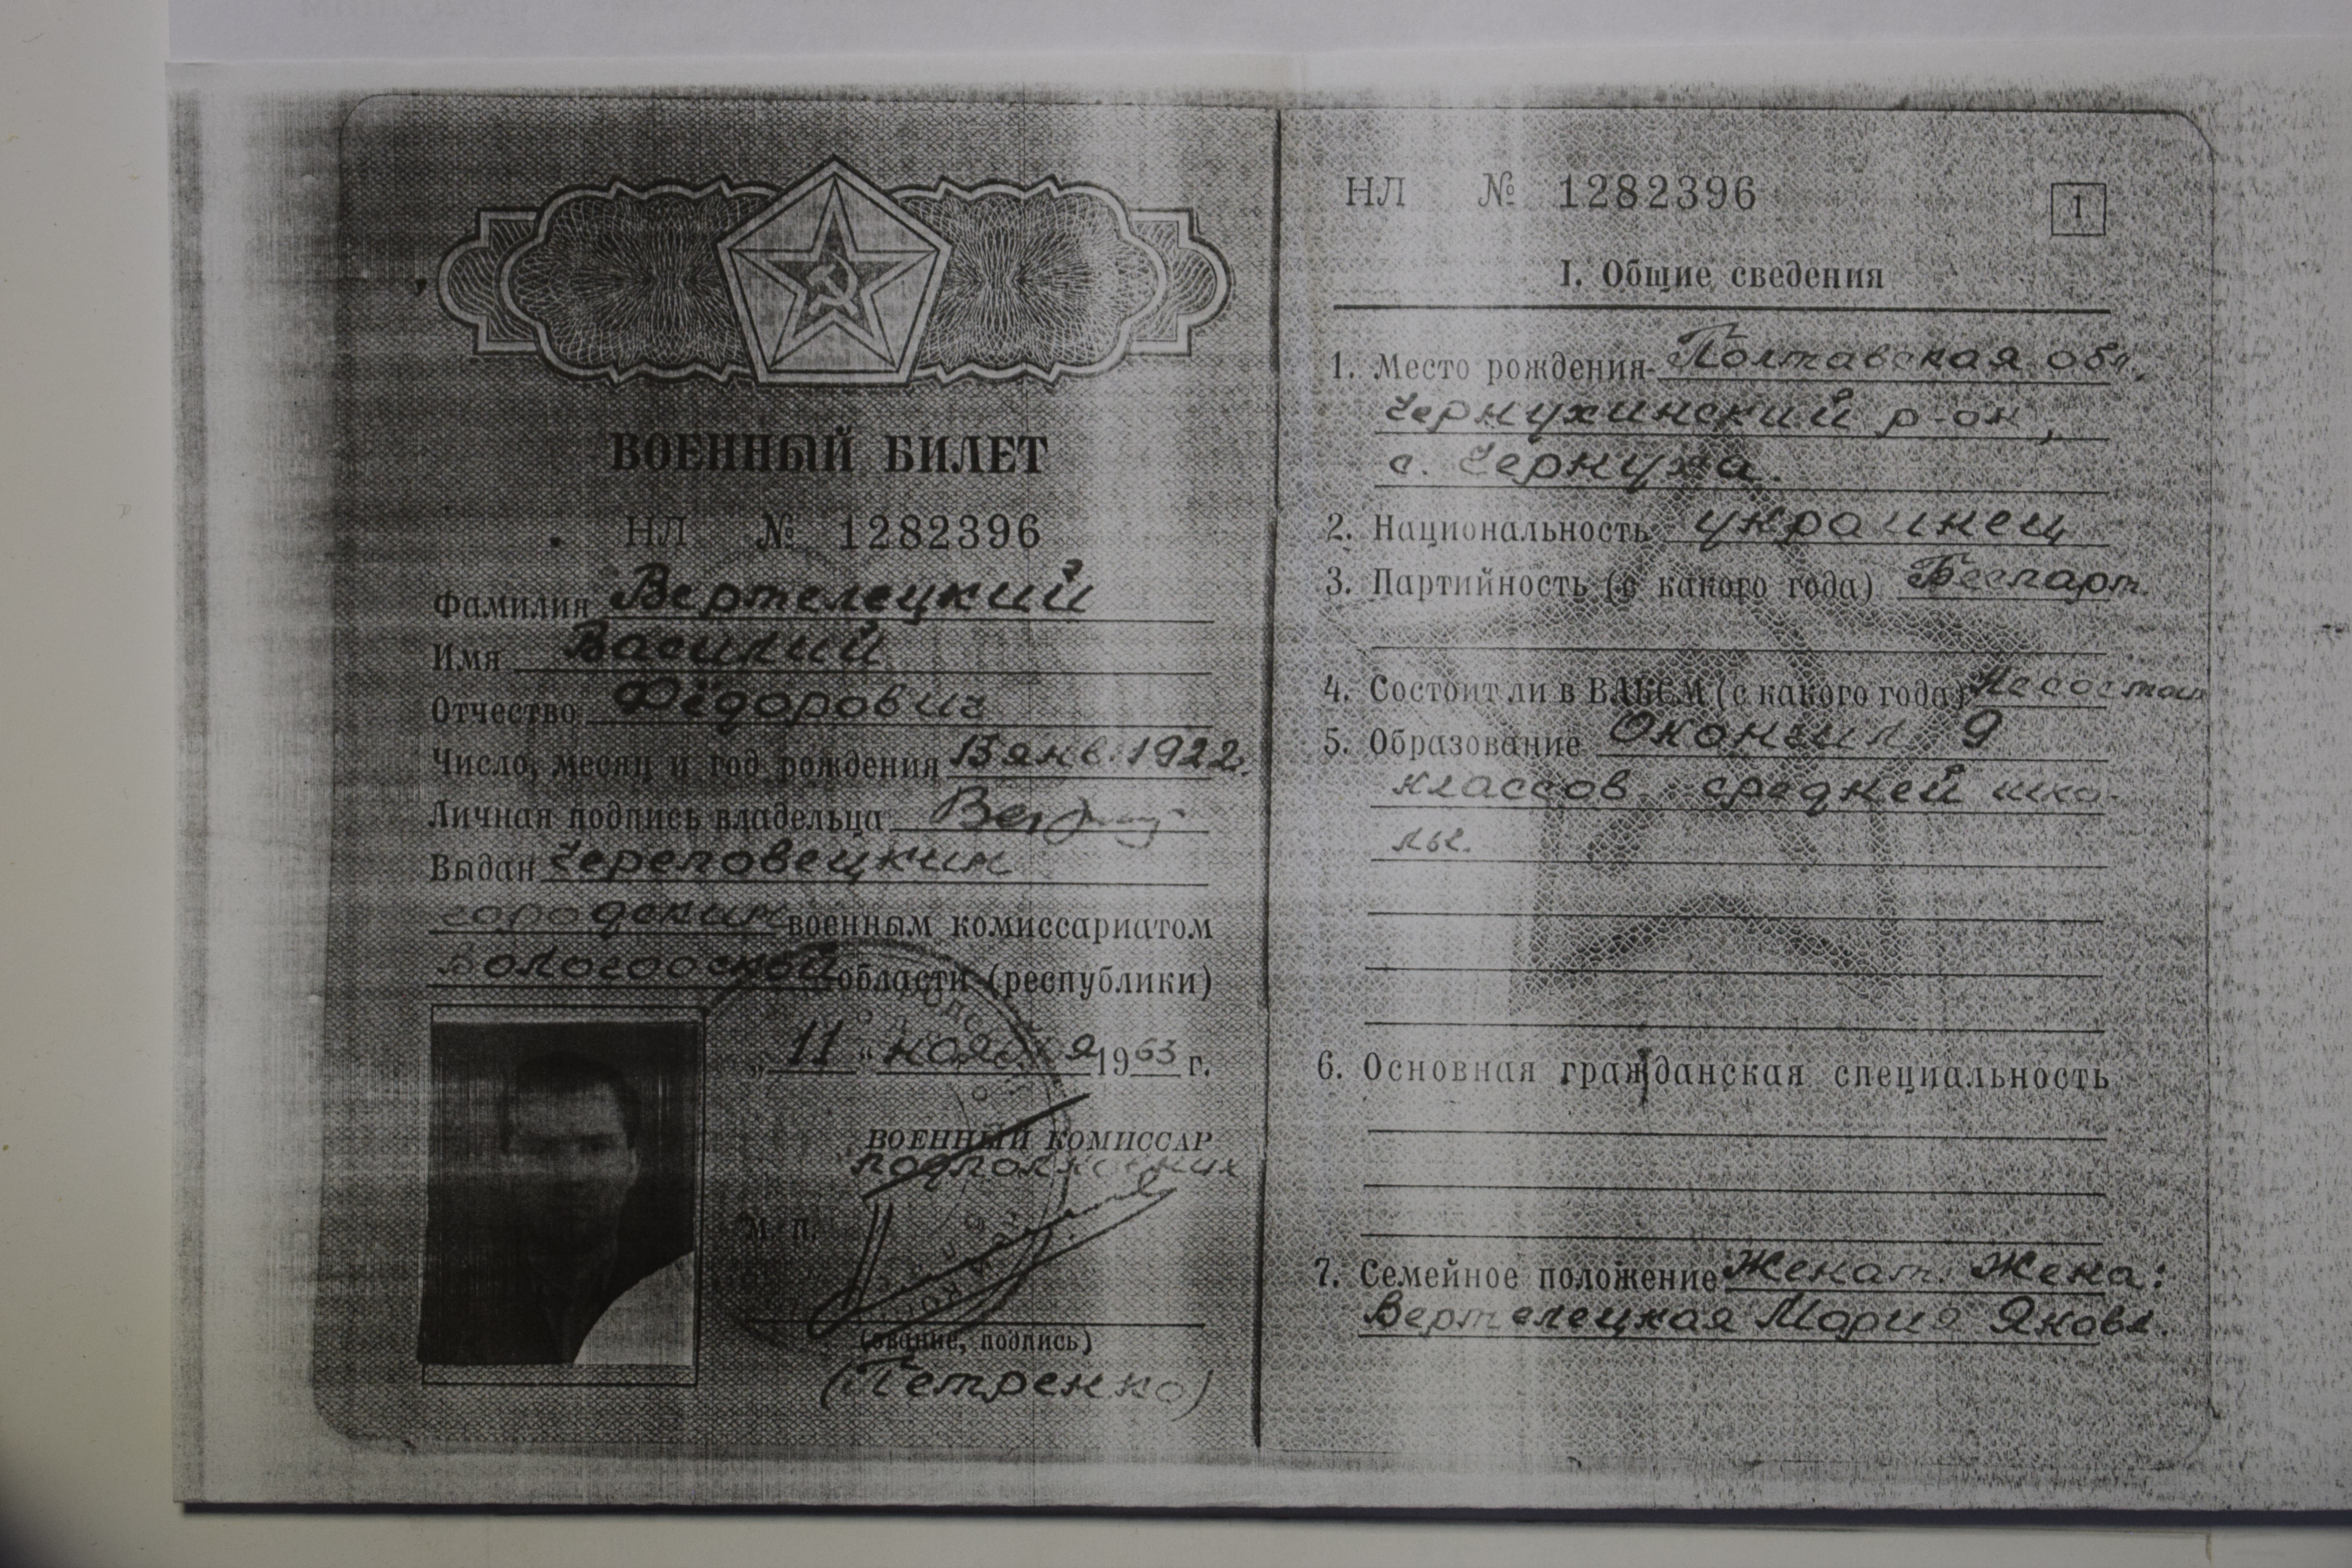 ВОЕННЫЙ БИЛЕТ
НЛ № 1282396
Фамилия Вертелецкий
Имя Василий
Отчество Фёдорович
Число, месяц и год рождения 13 янв. 1922.
Личная подпись владельца
Выдан Череповецким
городским военным комиссариатом
Вологодской области (республики)
„11“ ноября 1963 г.
ВОЕННЫЙ КОМИССАР
подполковник
М. П.
(звание, подпись)
(Петренко)
НЛ № 1282396
1
I. Общие сведения
1. Место рождения Полтавская обл.,
Чернухинский р-он,
с. Чернуха.
2. Национальность украинец
3. Партийность (с какого года) Беспарт.
4. Состоит ли в ВЛКСМ (с какого года) Не состоит
5. Образование Окончил 9
классов средней шко-
лы.
6. Основная гражданская специальность
7. Семейное положение Женат. Жена:
Вертелецкая Мария Яковл.